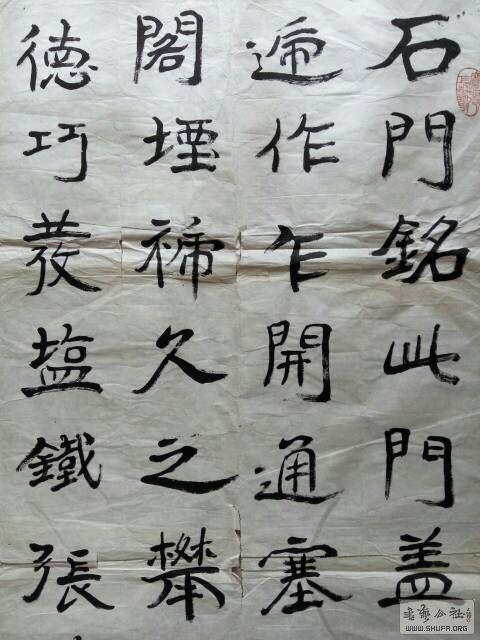 石門銘此門盖
逓作乍開通塞
閣堙褫久之攀
德巧發塩鐵張
书艺公社
WWW.SHUFA.ORG